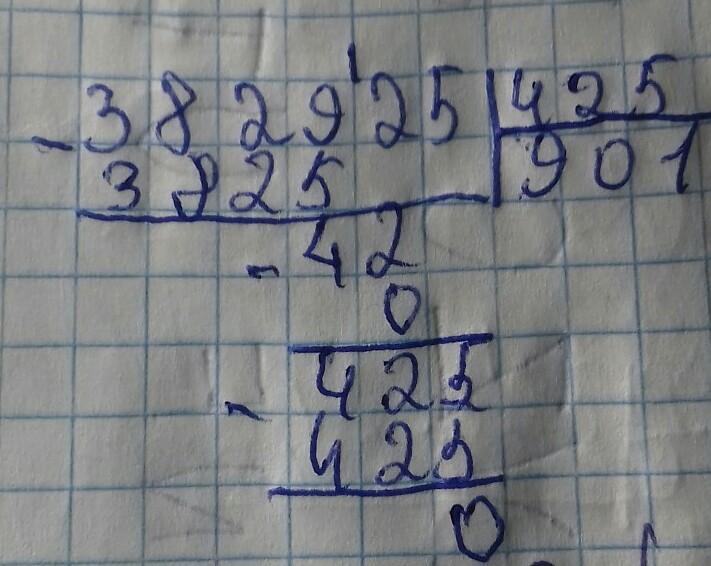 - 3829'25 | 425
3825 | 901
- 42
0
- 425
425
0